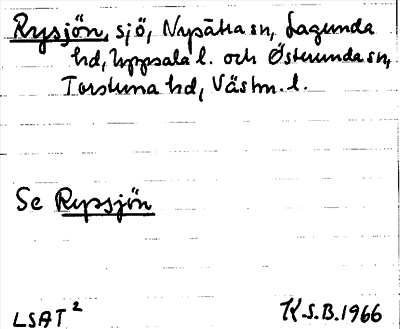 Rysjön, sjö, Nysätra sn, Lagunda
hd, Uppsala l. och Österunda sn,
Torstuna hd, Västm. l.
Se Rypsjön
LSAT² K.S.B.1966